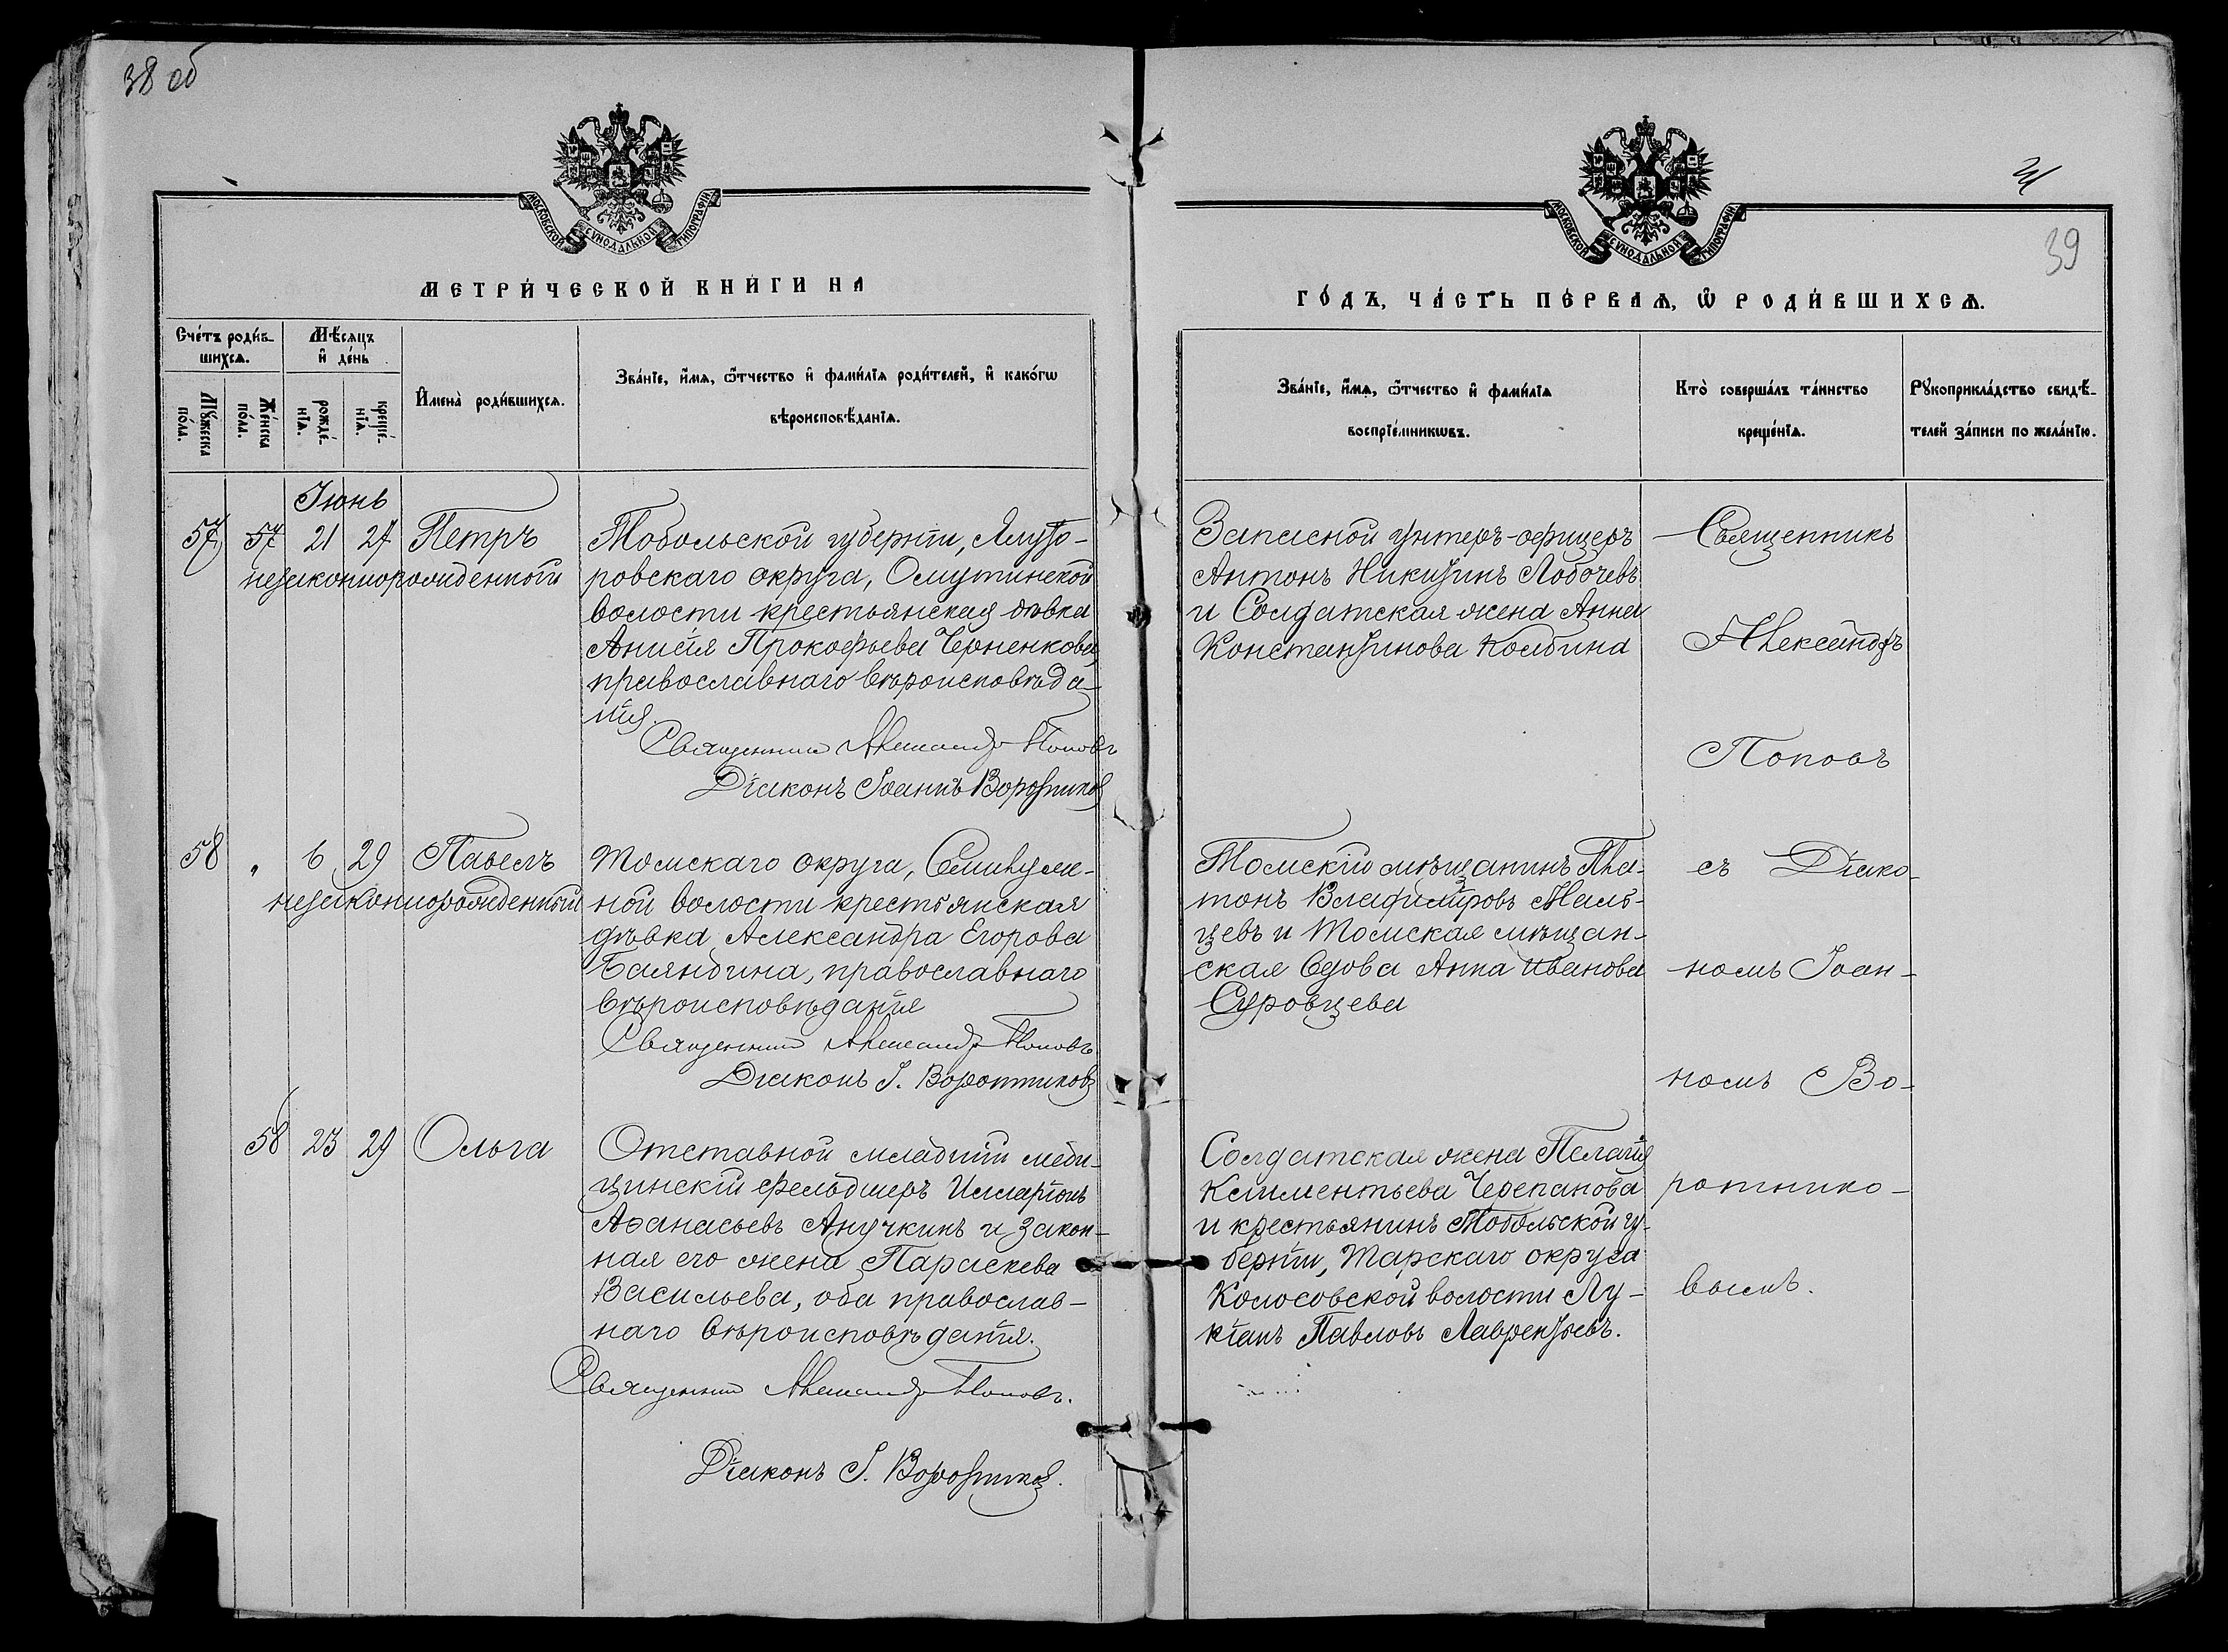 38 об
МОСКОВСКОЙ СѴНОДАЛЬНОЙ ТИПОГРАФІИ
МЕТРИ́ЧЕСКОЙ КНИ́ГИ НА
Сче́тъ роди́в-
шихсѧ.
Мѣ́сѧцъ
и҆ де́нь
Мꙋ́жеска
по́ла.
Же́нска
по́ла.
рожде́-
нїѧ.
креще́-
нїѧ.
И҆мена̀ роди́вшихсѧ.
Зва́нїе, и҆́мѧ, ѻ҆́тчество и҆ фами́лїѧ роди́телей, и҆ како́гѡ
вѣроисповѣ́данїѧ.
Іюнь
57 57 21 24 Петръ
незаконнорожденный
Тобольской губерніи, Ялуто-
ровскаго округа, Омутинской
волости крестьянская дѣвка
Анисія Прокофьева Черненкова,
православнаго вѣроисповѣда-
нія.
Священникъ Александръ Поповъ
Діаконъ Іоаннъ Воротниковъ
58 " 6 29 Павелъ
незаконнорожденный
Томскаго округа, Семилуж-
ной волости крестьянская
дѣвка Александра Егорова
Баяндина, православнаго
вѣроисповѣданія
Священникъ Александръ Поповъ
Діаконъ І. Воротниковъ
58 23 29 Ольга
Отставной младшій меди-
цинскій фельдшеръ Илларіонъ
Аѳанасьевъ Анучкинъ и закон-
ная его жена Параскева
Васильева, оба православ-
наго вѣроисповѣданія.
Священникъ Александръ Поповъ.
Діаконъ І. Воротниковъ.
39
МОСКОВСКОЙ СѴНОДАЛЬНОЙ ТИПОГРАФІИ
ГО́ДЪ, ЧА́СТЬ ПЕ́РВАѦ, Ѡ҆ РОДИ́ВШИХСѦ.
Зва́нїе, и҆́мѧ, ѻ҆́тчество и҆ фами́лїѧ
воспрїе́мникѡвъ.
Кто̀ соверша́лъ та́инство
креще́нїѧ.
Рꙋкоприкла́дство свидѣ́-
телей за́писи по жела́нїю.
Запасной унтеръ-офицеръ
Антонъ Никитинъ Лобочевъ
и Солдатская жена Анна
Константинова Колбина
Томскій мѣщанинъ Пла-
тонъ Владиміровъ Маль-
цевъ и Томская мѣщан-
ская вдова Анна Иванова
Суровцева
Солдатская жена Пелагія
Климентьева Черепанова
и крестьянинъ Тобольской гу-
берніи, Тарскаго округа
Колосовской волости Лу-
кіанъ Павловъ Лаврентьевъ.
Священникъ
Александръ
Поповъ
съ Діако-
номъ Іоан-
номъ Во-
ротнико-
вымъ.